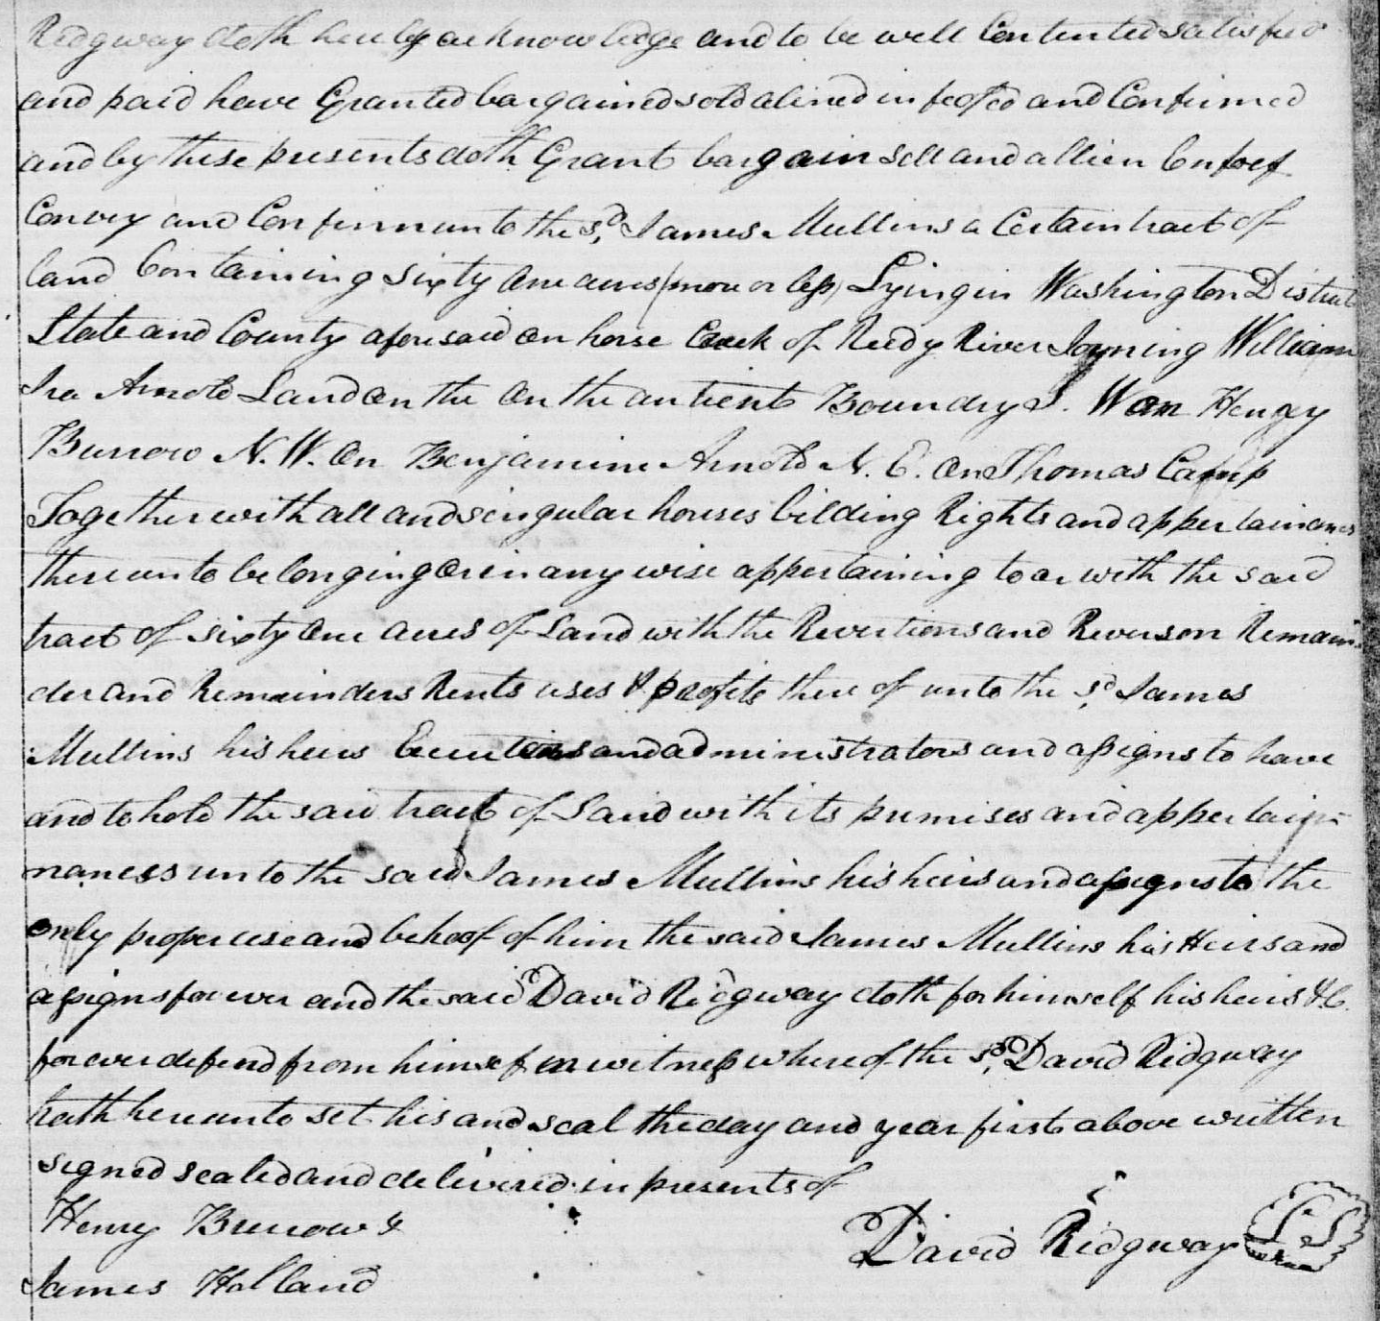 Ridgway doth hereby acknowledge and to be well Contented satisfied
and paid have Granted bargained sold aliened infeofed and Confirmed
and by these presents doth Grant bargain sell and allien Enfeef
Convey and Confirm unto the sd. James Mullins a Certain tract of
land Containing sixty One acres (more or less) Lying in Washington District
State and County aforesaid on horse Creek of Reedy River Joyning William
Ira Arnold Land On the On the antient Boundry S. W on Henry
Burrow N. W. On Benjamine Arnold N. E. On Thomas Camp
Together with all and singular houses bilding Rights and appertainances
thereunto belonging Or in any wise appertaining to or with the said
tract of sixty One acres of Land with the Revertions and Reverson Remain
der and Remainders Rents uses & profits there of unto the sd. James
Mullins his heirs Executors and administrators and assigns to have
and to hold the said tract of Land with its premises and appertain
naness unto the said James Mullins his heirs and assigns to the
only proper use and behoof of him the said James Mullins his Heirs and
assigns forever and the said David Ridgway doth for himself his heirs &C.
forever defend from himsef in witness whereof the sd. David Ridgway
hath hereunto set his and seal the day and year first above written
signed sealed and delivered in presents of
Henry Burrow &
David Ridgway LS
James Holland